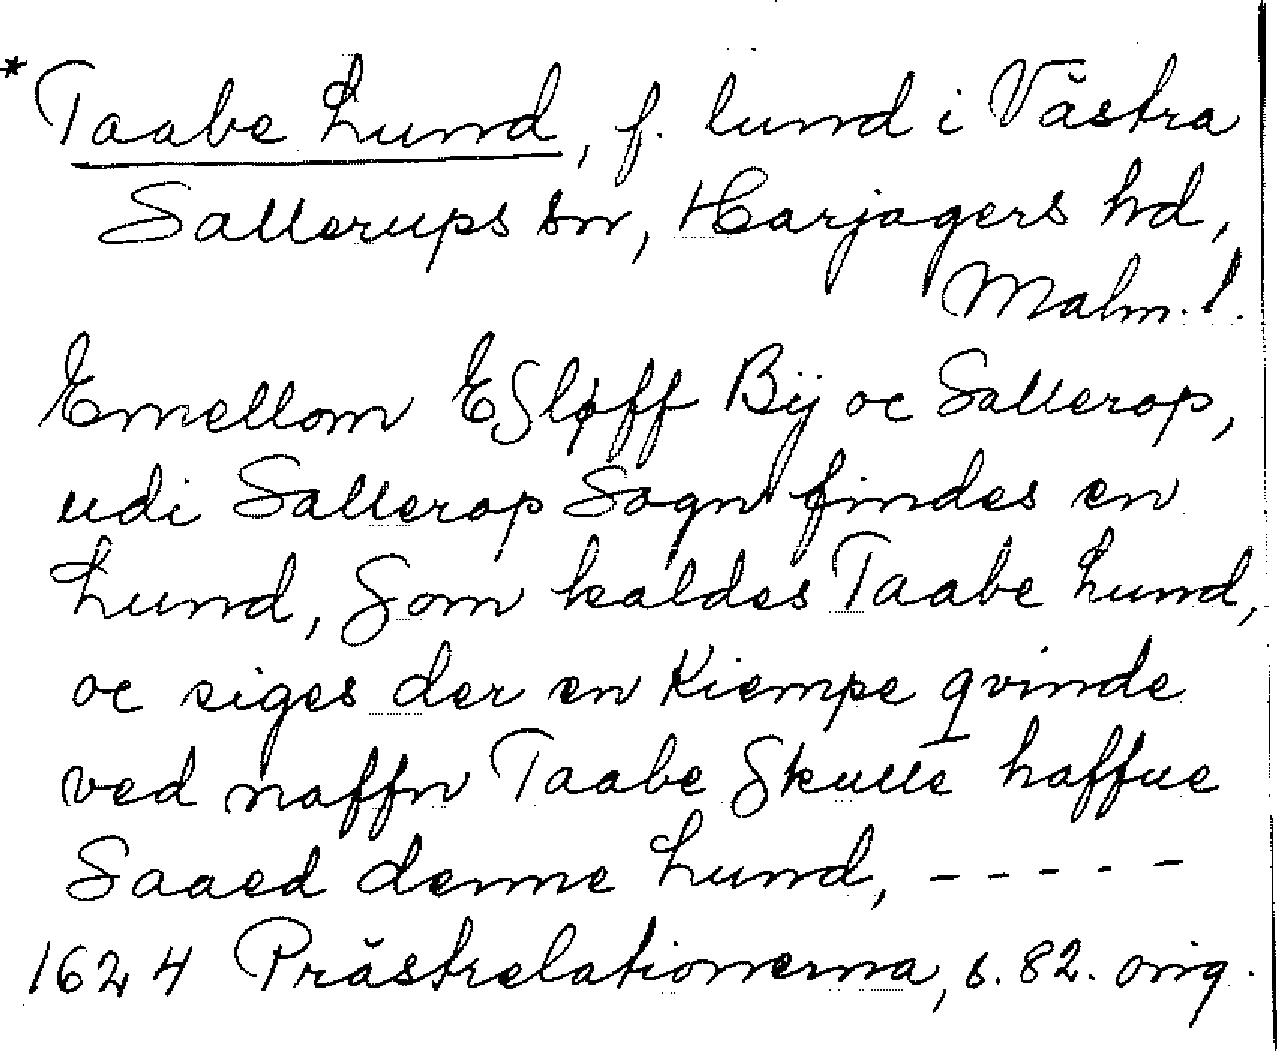 *Taabe Lund, f. lund i Västra
Sallerups sn, Harjagers hd,
Malm. l.
Emellom Esløff Bÿ oc Sallerop,
udi Sallerop Sogn findes en
Lund, Som kaldes Taabe Lund,
oc siges der en Kiempe qvinde
ved naffn Taabe Skulle haffue
Saaed denne Lund, - - - - -
1624 Prästrelationerna, s. 82. orig.